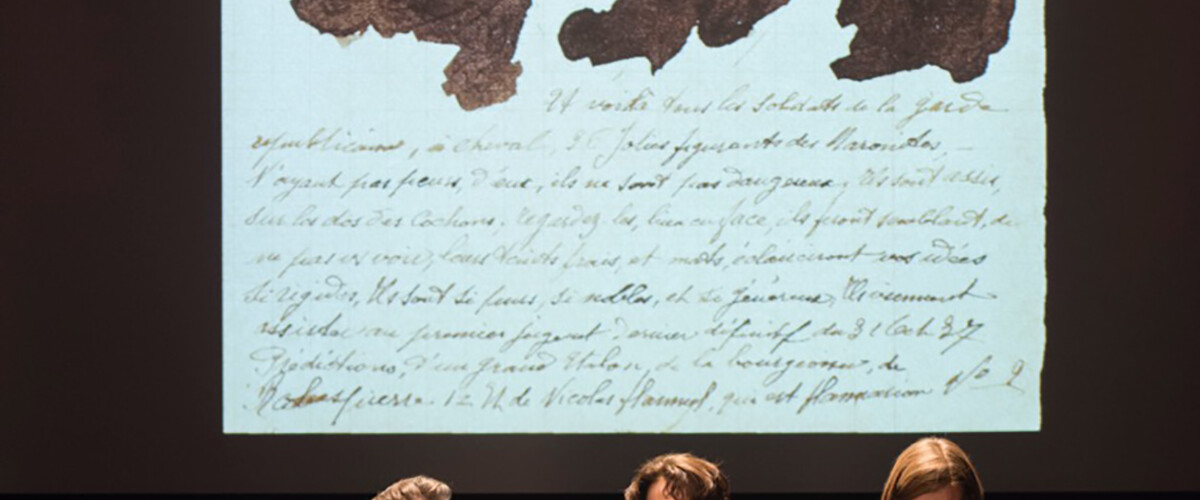 Et voilà tous les soldats de la garde
républicaine, à cheval, 36 Jolies figurants des Maronites, —
N'ayant pas peurs, d'eux, ils ne sont pas dangereux, Ils sont assis,
Sur les dos des cochons. regardez-les, bien en face, ils feront semblant, de
ne pas vs voir, leurs teints frais, et mots, éclairciront vos idées
Si rigides, Ils sont si purs, si nobles, et si généreux, Ils viennent
assister au premier jugent Dernier définitif du 31 Oct. 37
Prédictions, d'un grand de la bourgeoisie, de
12 H de Nicolas flammel, qui est flammarion No 2